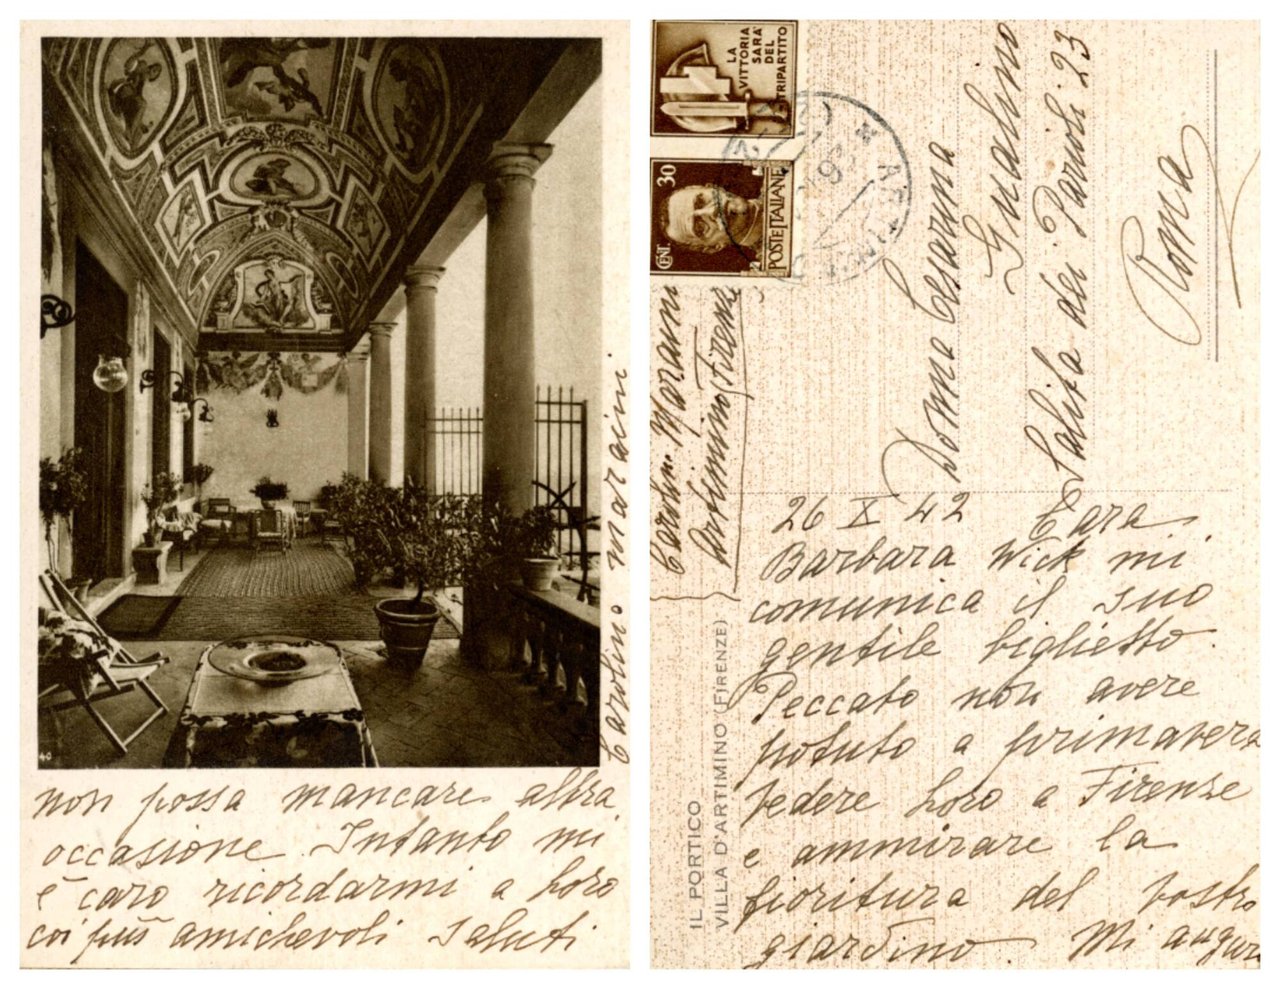 40
Carolino Maraini
non possa mancare altra
occasione. Intanto mi
è caro ricordarmi a loro
coi più amichevoli saluti
LA
VITTORIA
SARÀ
DEL
TRIPARTITO
30
CENT.
POSTE ITALIANE
Donna Cesarina
Gualino
Salita dei Parioli 23
Roma
Carolino Maraini
Artimino (Firenze)
IL PORTICO
VILLA D'ARTIMINO (FIRENZE)
26 X 42 Cara
Barbara Wick mi
comunica il suo
gentile biglietto
Peccato non avere
potuto a primavera
vedere loro a Firenze
e ammirare la
fioritura del vostro
giardino. Mi auguro